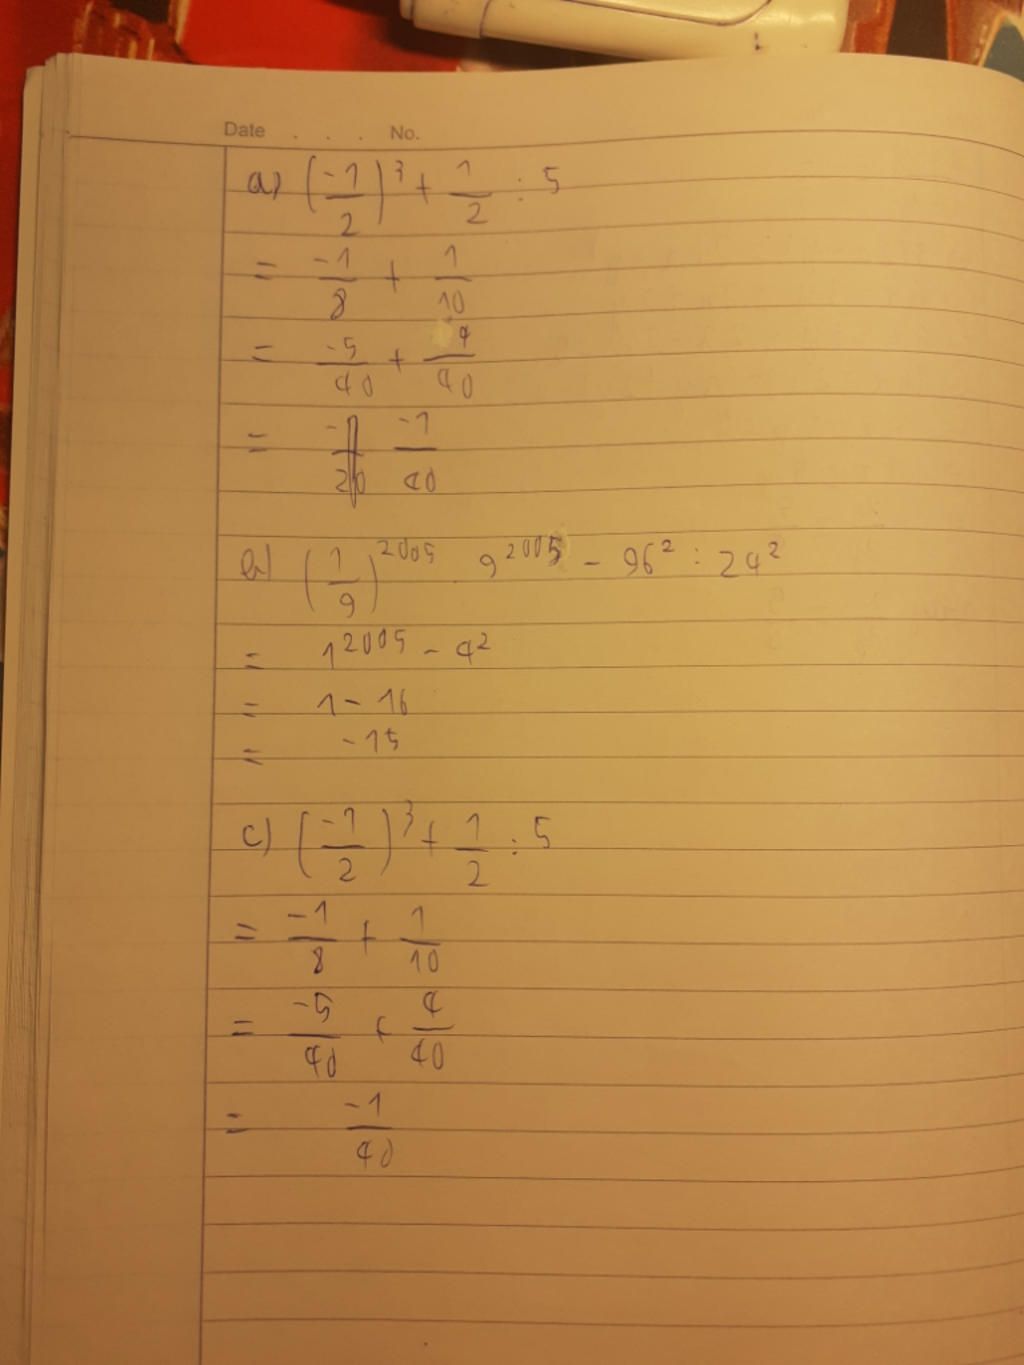 Date . . . No.
a) (-1/2)³ + 1/2 : 5
= -1/8 + 1/10
= -5/40 + 4/40
= -1/20 -1/40
b) (1/9)²⁰⁰⁵ . 9²⁰⁰⁵ - 96² : 24²
= 1²⁰⁰⁵ - 4²
= 1 - 16
= -15
c) (-1/2)³ + 1/2 : 5
= -1/8 + 1/10
= -5/40 + 4/40
= -1/40